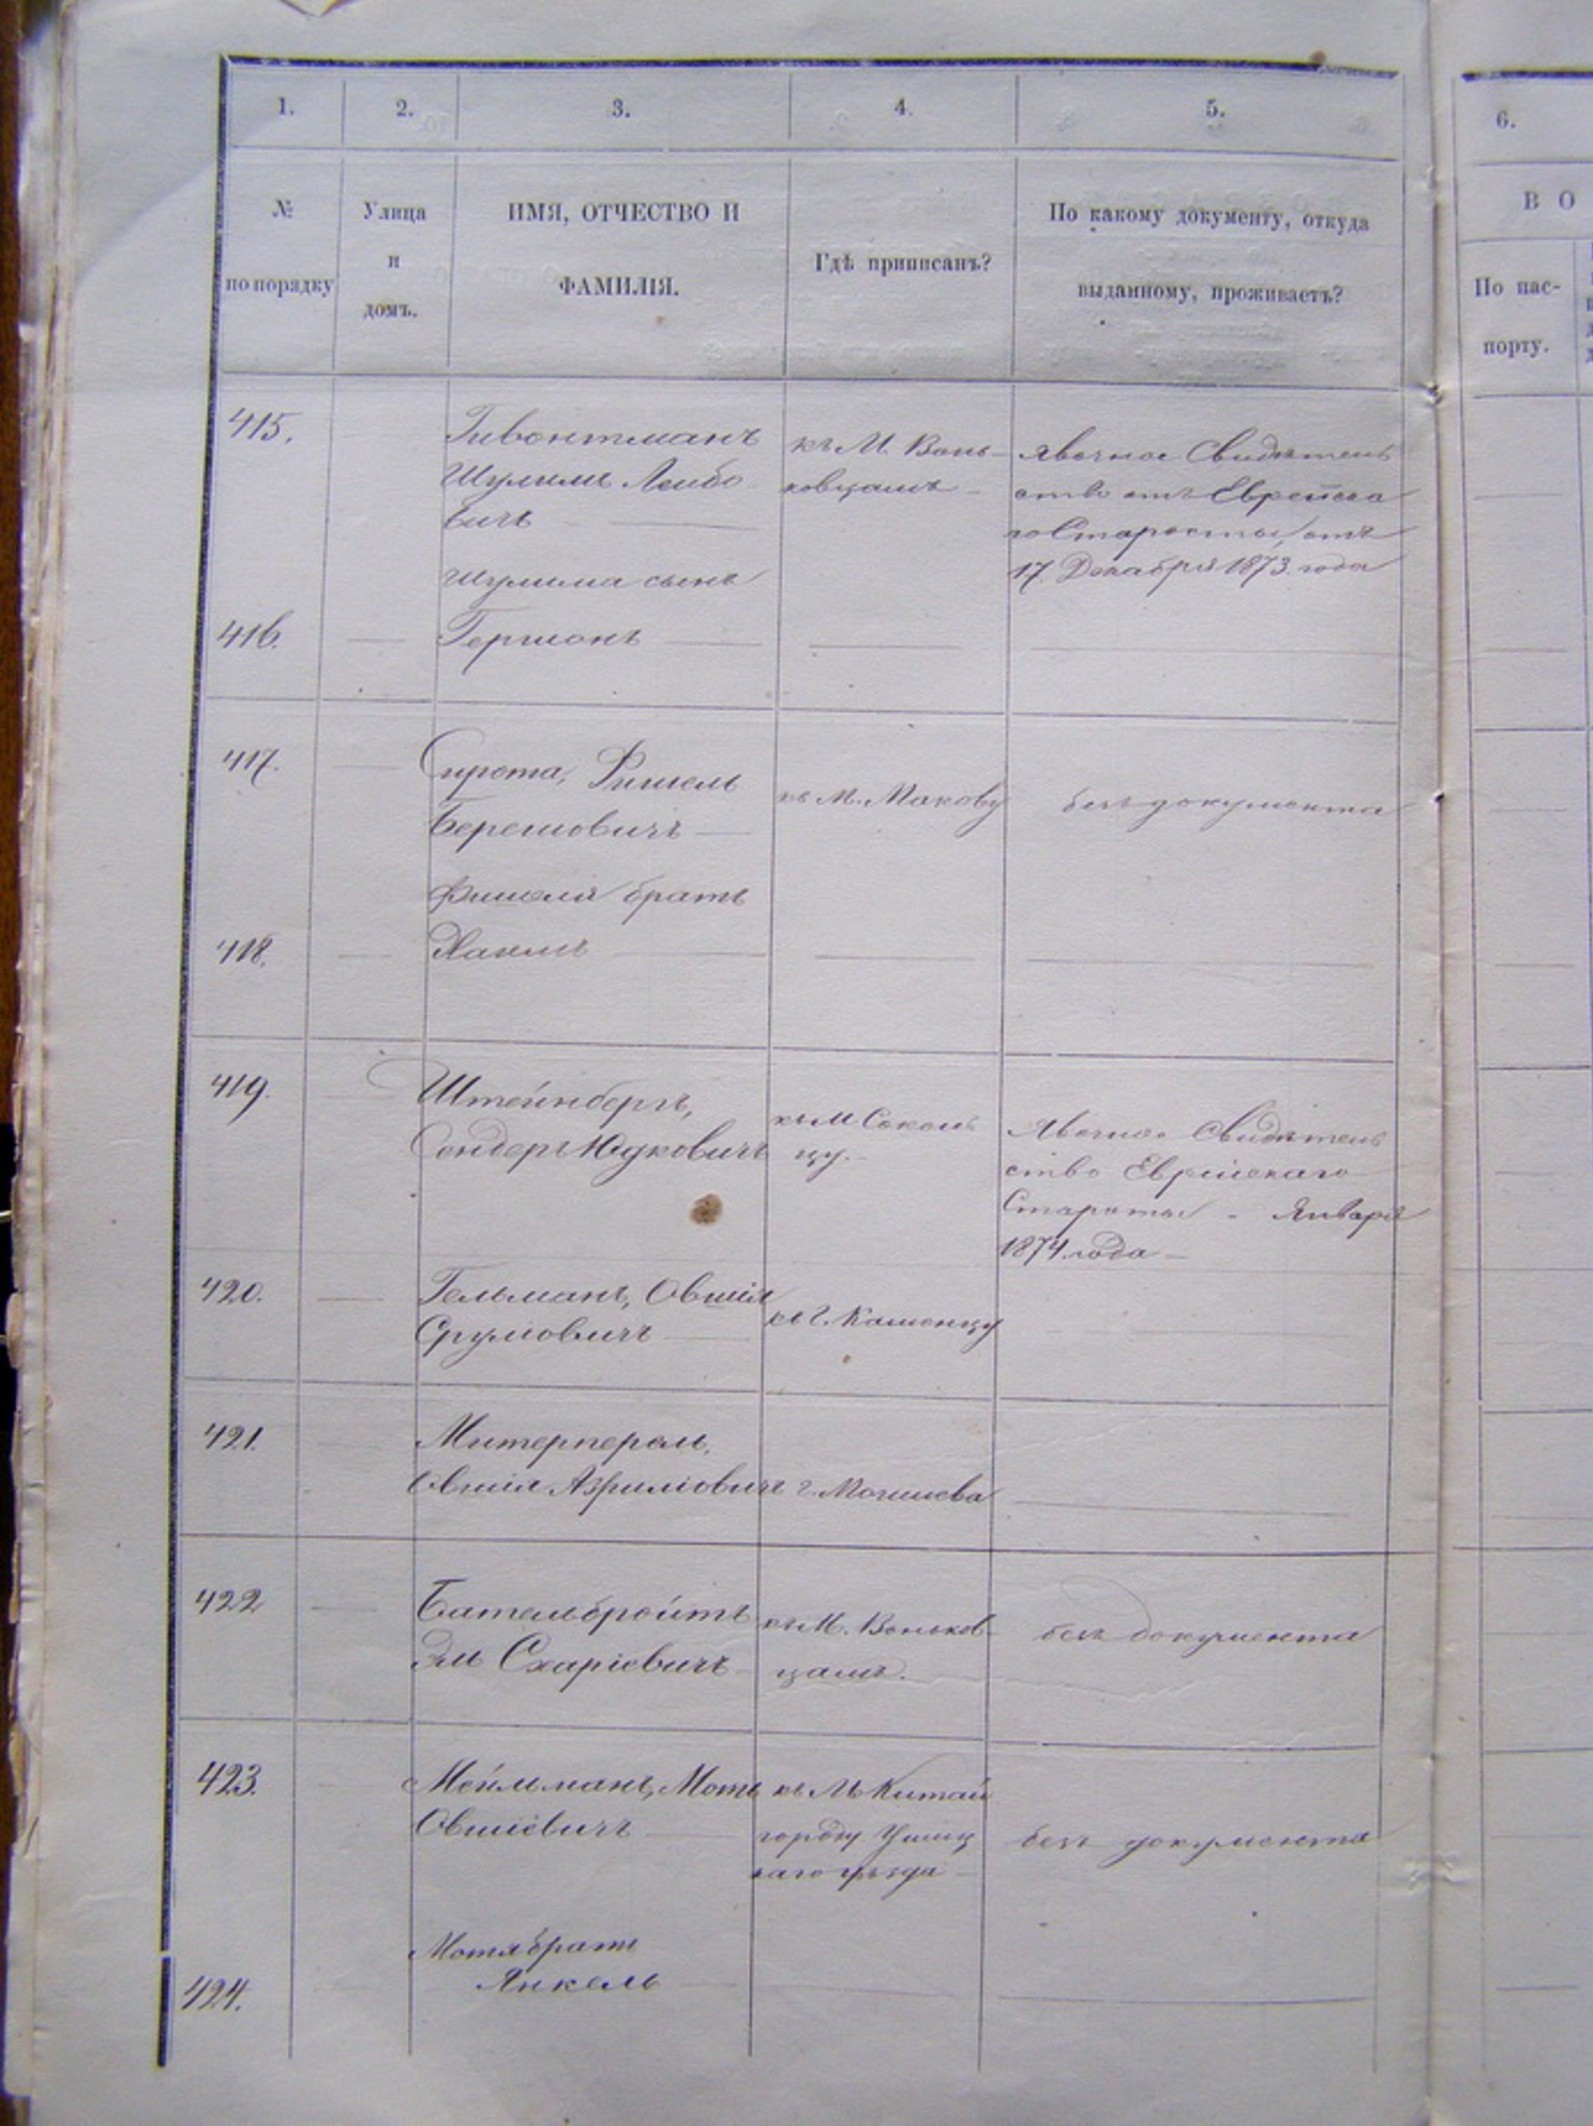 1.
2.
3.
4.
5.
6.
№
по порядку
Улица
и
домъ.
ИМЯ, ОТЧЕСТВО И
ФАМИЛІЯ.
Гдѣ приписанъ?
По какому документу, откуда
выданному, проживаетъ?
В О
По пас-
порту.
415.
Гивонтманъ
Шулимъ Лейбо
вичъ
къ М. Вонь-
ковцамъ
Явочное Свидѣтель
ство отъ Еврейска
го Старосты отъ
17 Декабря 1873 года
Шулима сынъ
416.
Гершонъ
417.
Сирота, Фишель
Берешовичъ
къ М. Макову
безъ документа
Фишеля братъ
418.
Хаимъ
419.
Штейнбергъ,
Сендеръ Юдковичъ
къ М Соколь
цу.
Явочное Свидѣтель
ство Еврейскаго
Старосты - Января
1874 года
420.
Гельманъ, Овшія
Сруліовичъ
къ г. Каменцу
421.
Митерперель,
Овшія Азриліовичъ
г. Могилева
422
Бательбройтъ
Эль Схаріевичъ
къ М. Вонсков-
цамъ.
безъ документа
423.
Мейльманъ, Моть
Овшіевичъ
къ М Китай
городу Ушиц
каго уѣзда
безъ документа
Мотя братъ
424.
Янкель